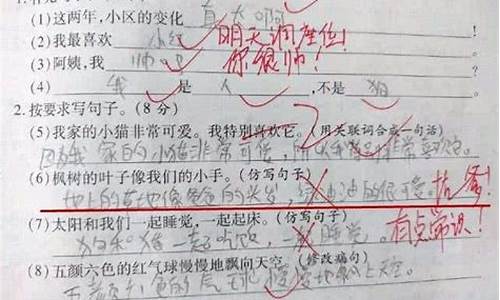 (1)这两年,小区的变化 真大啊
(2)我最喜欢 小红 明天调座位!
(3)阿姨,我 帅吗 你很帅!
(4) 我 是 人 ,不是 狗
2.按要求写句子。(8分)
(5)我家的小猫非常可爱。我特别喜欢它。(用关联词合成一句话)
因为我家的小猫非常可爱,所以我非常喜欢它。
(6)枫树的叶子像我们的小手。(仿写句子)
地上的草地像爸爸的头发,绿油油的很可爱。找爹!
(7)太阳和我们一起睡觉,一起起床。(仿写句子)
狗和猪一起吃饭,一起睡觉。 有点常识!
(8)五颜六色的红气球慢慢地飘向天空。(修改病句)
五颜六色的气球慢慢地飘上天空。